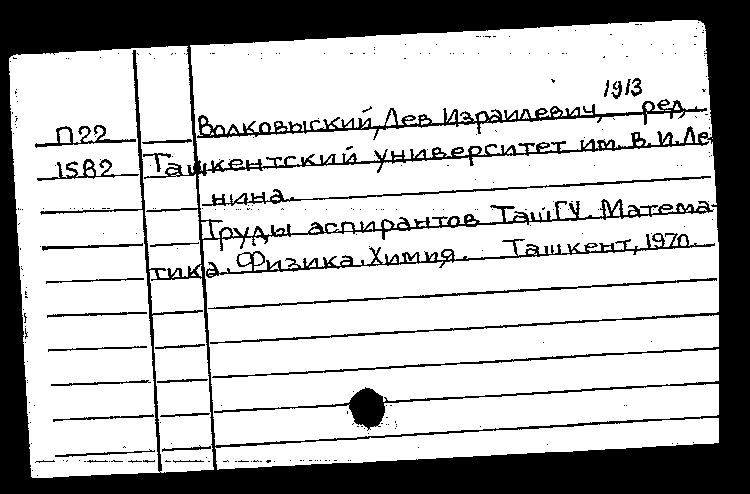 1913
П22 Волковыский, Лев Израилевич, ред.
1582 Ташкентский университет им. В.И.Ле-
нина.
Труды аспирантов ТашГУ. Матема-
тика. Физика. Химия. Ташкент, 1970.